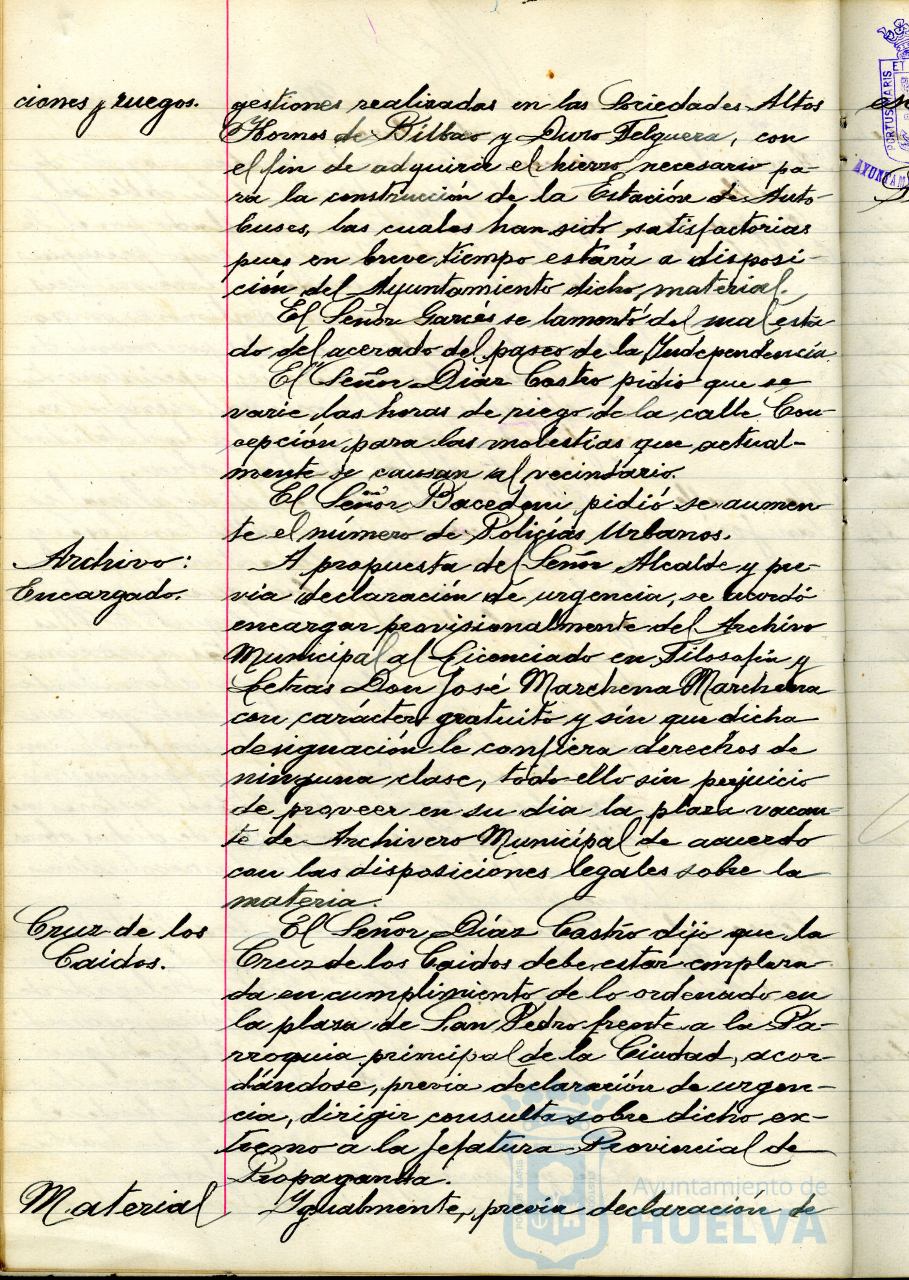 ciones y ruegos.
gestiones realizadas en las Sociedades Altos
Hornos de Bilbao y Duro Felguera, con
el fin de adquirir el hierro necesario pa-
ra la construcción de la Estación de Auto-
buses, las cuales han sido satisfactorias
pues en breve tiempo estará a disposi-
ción del Ayuntamiento dicho material.
El Señor Garcés se lamentó del mal esta-
do del acerado del paseo de la Independencia
El Señor Díaz Castro pidió que se
varíe las horas de riego de la calle Con-
cepción para las molestias que actual-
mente se causan al vecindario.
El Señor pidió se aumen
te el número de Policías Urbanos.
Archivo:
Encargado.
A propuesta del Señor Alcalde y pre-
via declaración de urgencia, se acordó
encargar provisionalmente del Archivo
Municipal al Licenciado en Filosofía y
Letras Don José Marchena Marchena
con carácter gratuito y sin que dicha
designación le confiera derechos de
ninguna clase, todo ello sin perjuicio
de proveer en su dia la plaza vacan-
te de Archivero Municipal de acuerdo
con las disposiciones legales sobre la
materia.
Cruz de los
Caidos.
El Señor Díaz Castro dijo que la
Cruz de los Caidos debe estar emplaza-
da en cumplimiento de lo ordenado en
la plaza de San Pedro frente a la Pa-
rroquia principal de la Ciudad, acor-
dándose, previa declaración de urgen-
cia, dirigir consulta sobre dicho ex-
tremo a la Jefatura Provincial de
Propaganda.
Material
Igualmente, previa declaración de
Ayuntamiento de
HUELVA
PORTUS MARIS